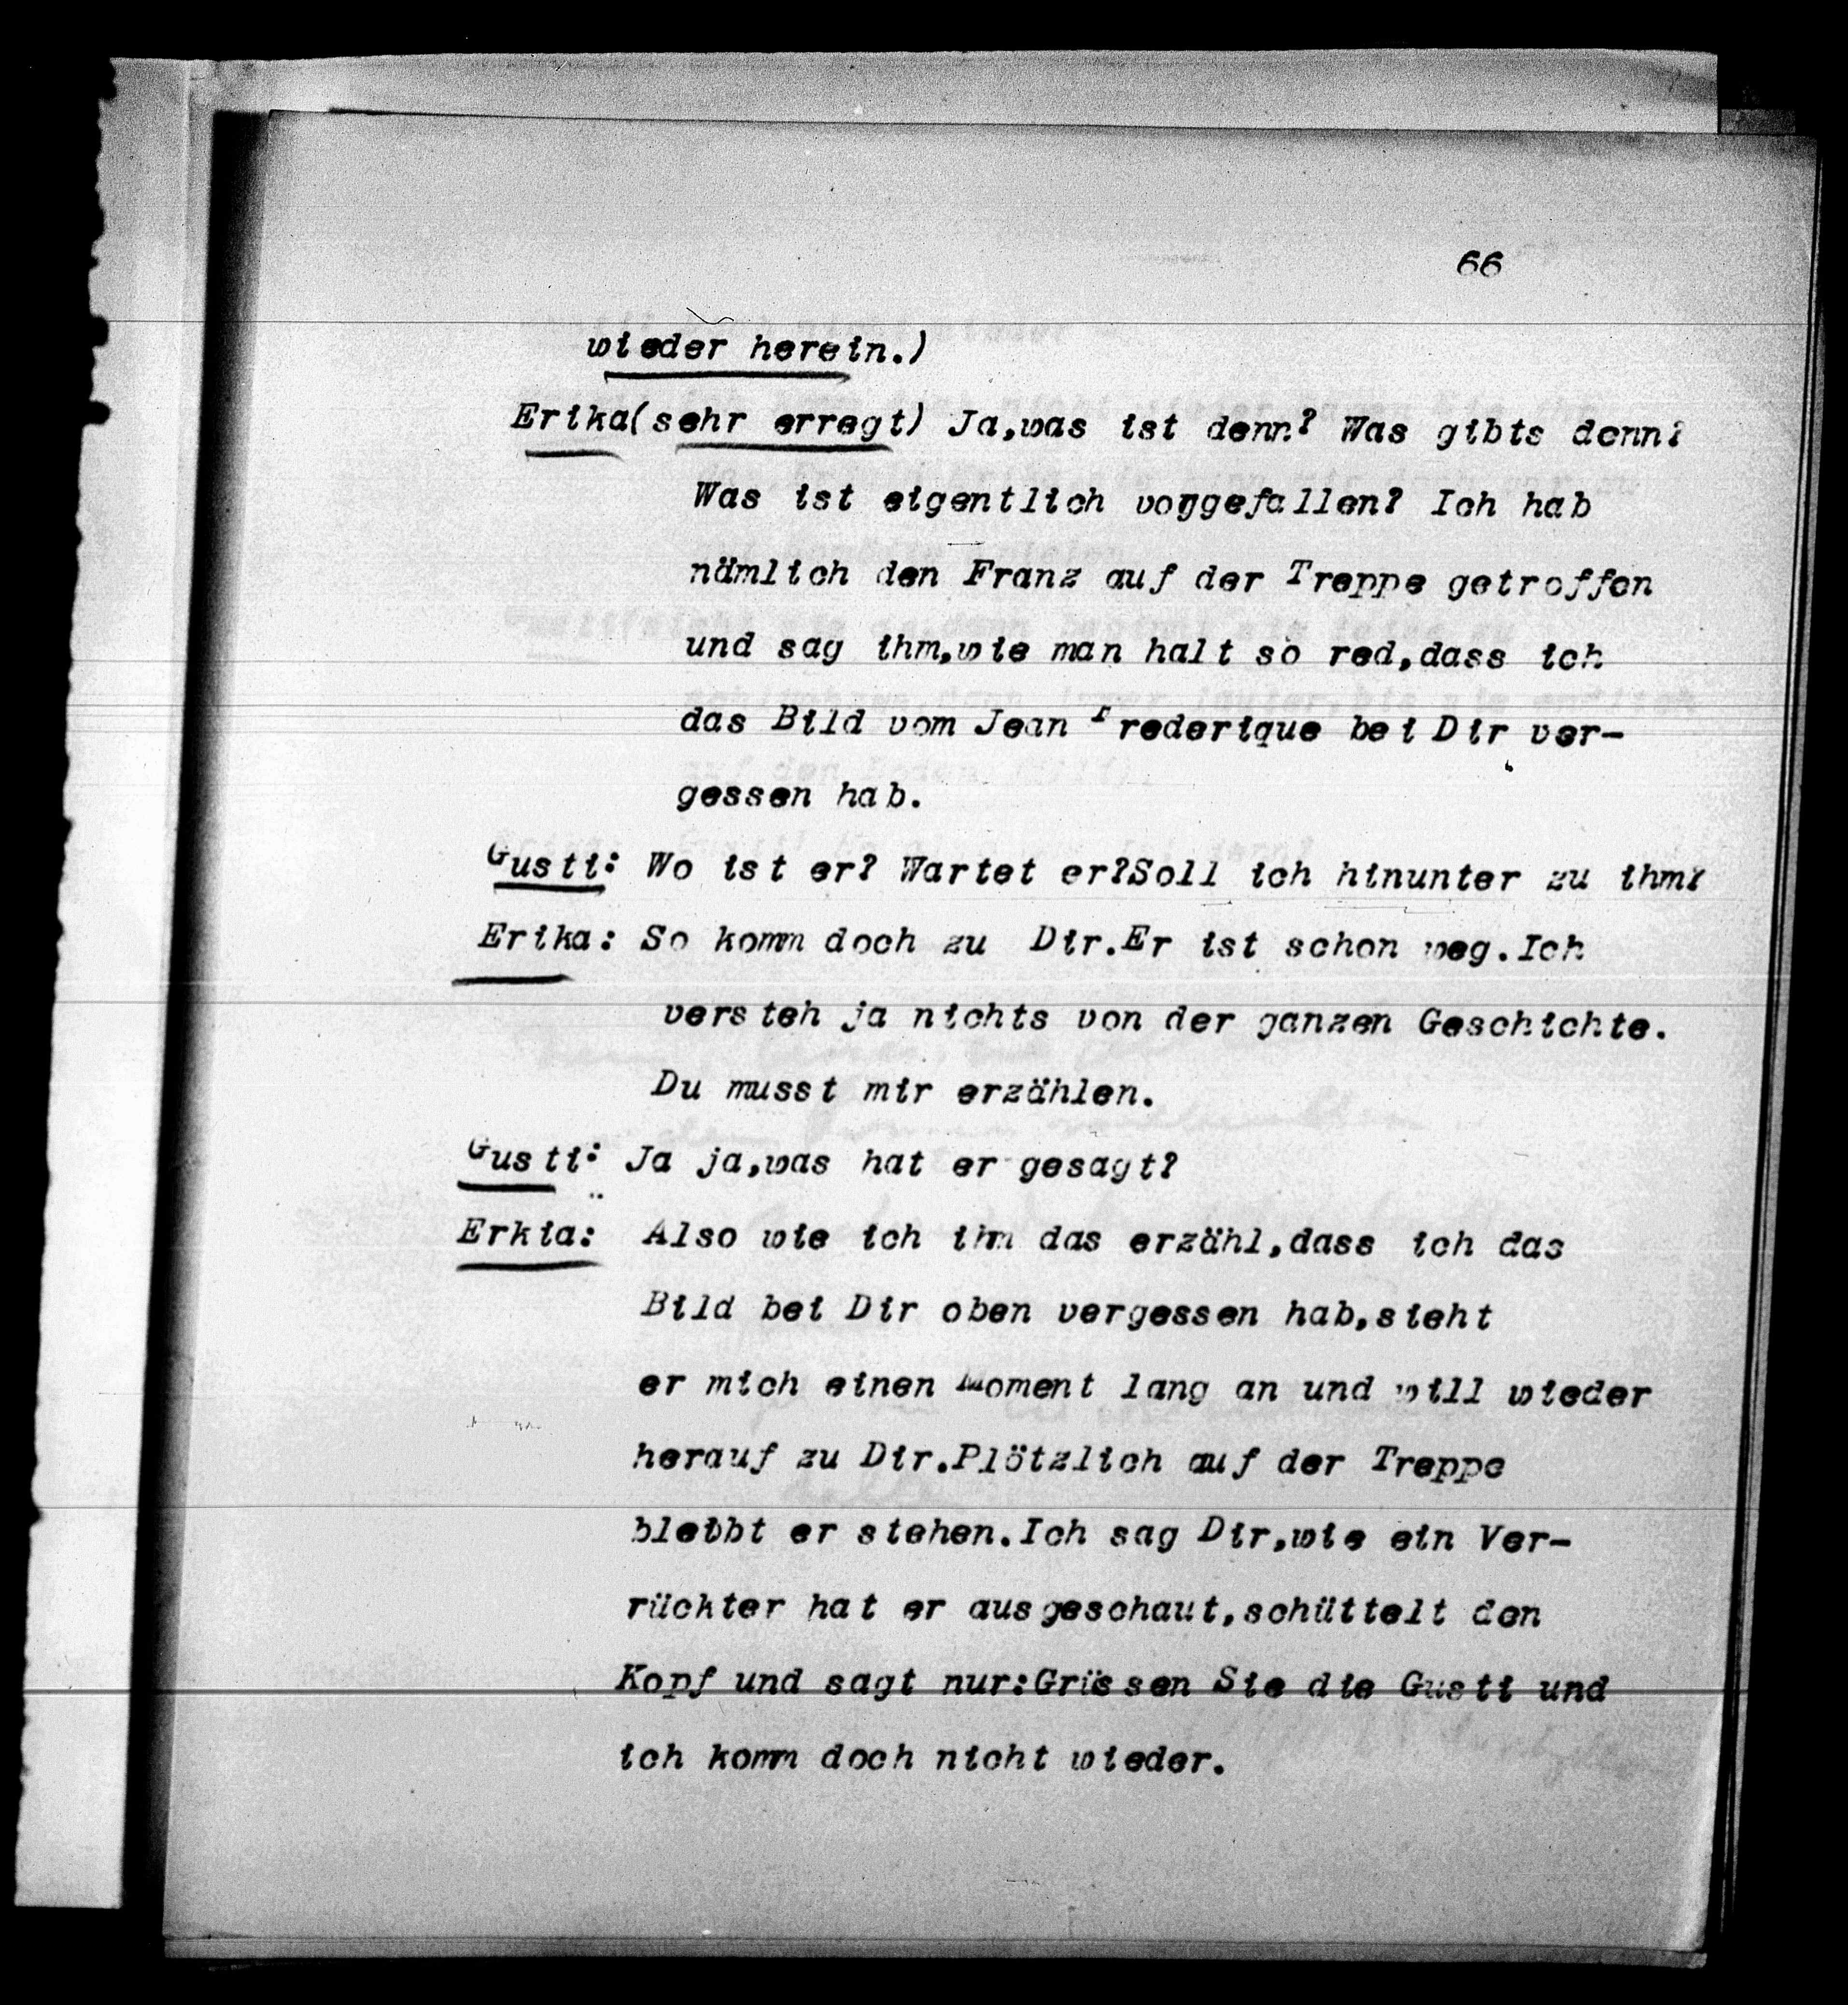 66
wieder herein.)
Erika(sehr erregt) Ja,was ist denn? Was gibts denn?
Was ist eigentlich vorgefallen? Ich hab
nämlich den Franz auf der Treppe getroffen
und sag ihm,wie man halt so red,dass ich
das Bild vom Jean Frederique bei Dir ver-
gessen hab.
Gusti: Wo ist er? Wartet er?Soll ich hinunter zu ihm?
Erika: So komm doch zu Dir.Er ist schon weg.Ich
versteh ja nichts von der ganzen Geschichte.
Du musst mir erzählen.
Gusti: Ja ja,was hat er gesagt?
Erkia: Also wie ich ihm das erzähl,dass ich das
Bild bei Dir oben vergessen hab,sieht
er mich einen Moment lang an und will wieder
herauf zu Dir.Plötzlich auf der Treppe
bleibt er stehen.Ich sag Dir,wie ein Ver-
rückter hat er ausgeschaut,schüttelt den
Kopf und sagt nur:Grüssen Sie die Gusti und
ich komm doch nicht wieder.